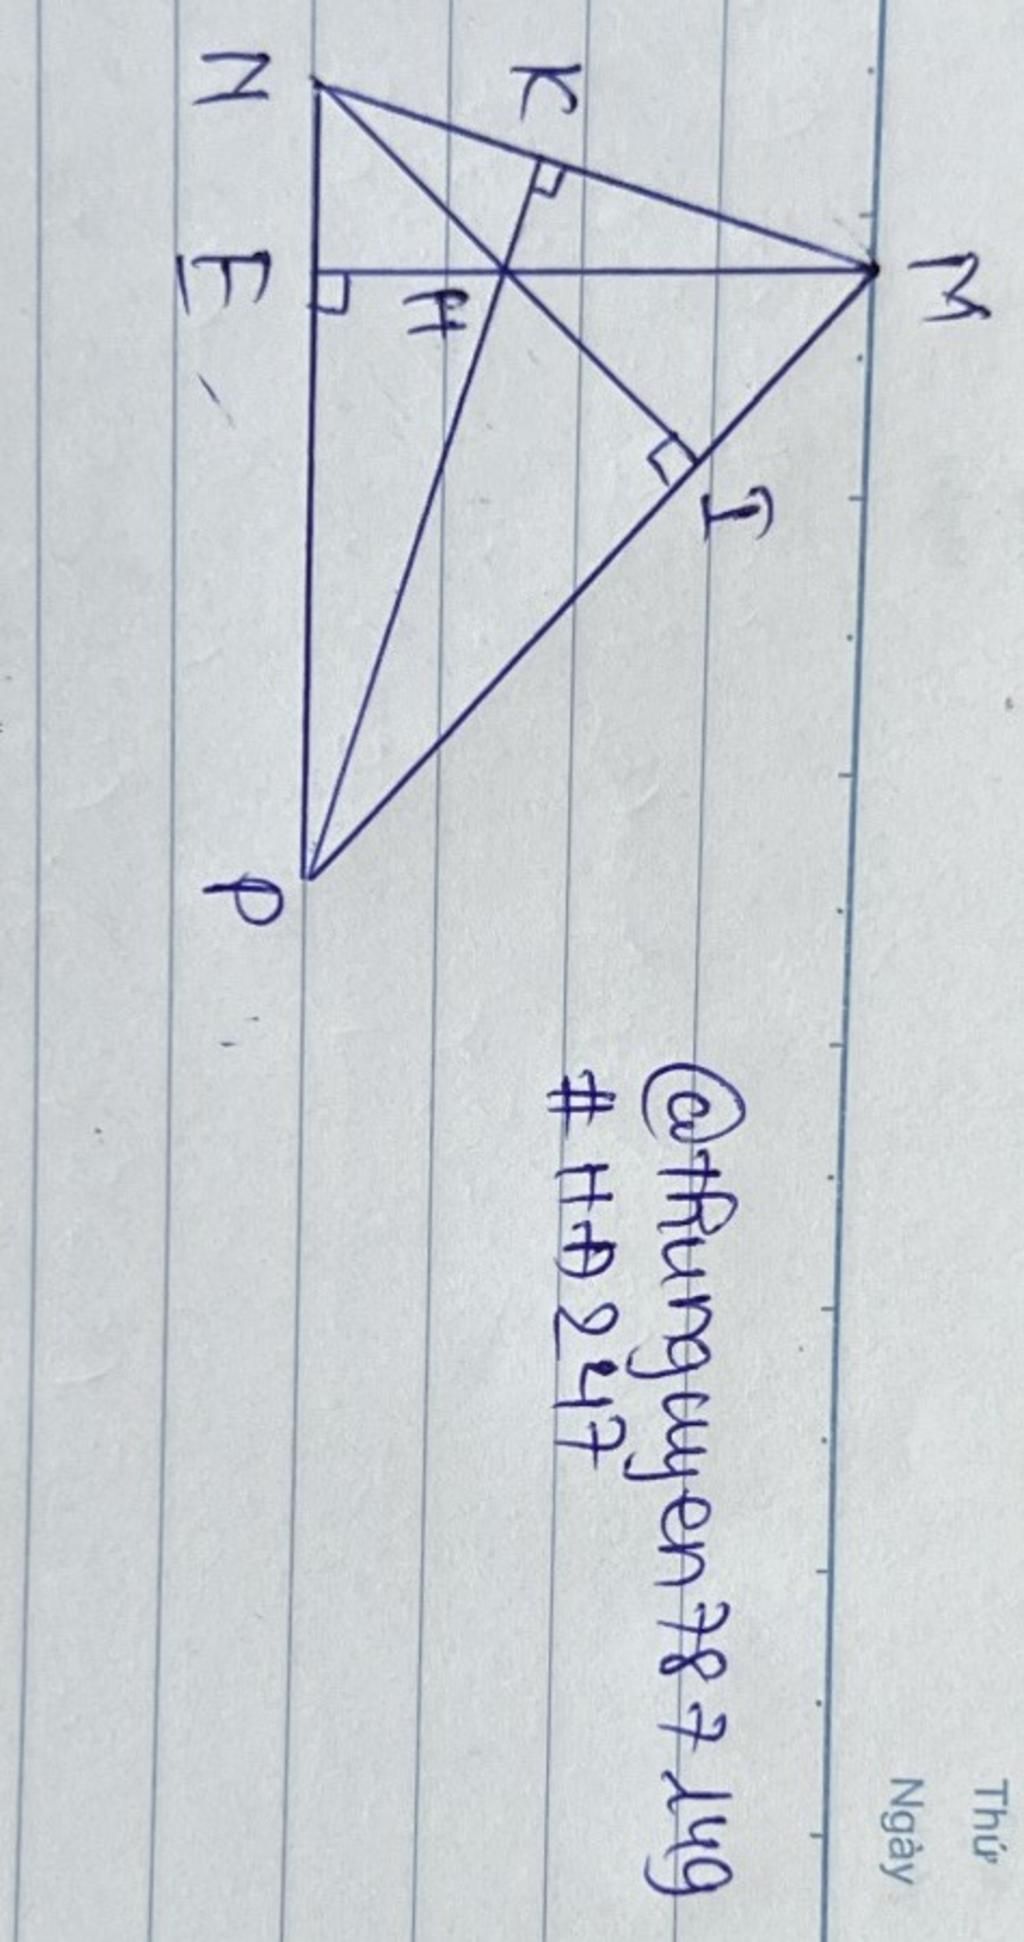 M
K
I
H
N
E
P
@thunguyen787149
#HĐ247
Thứ
Ngày